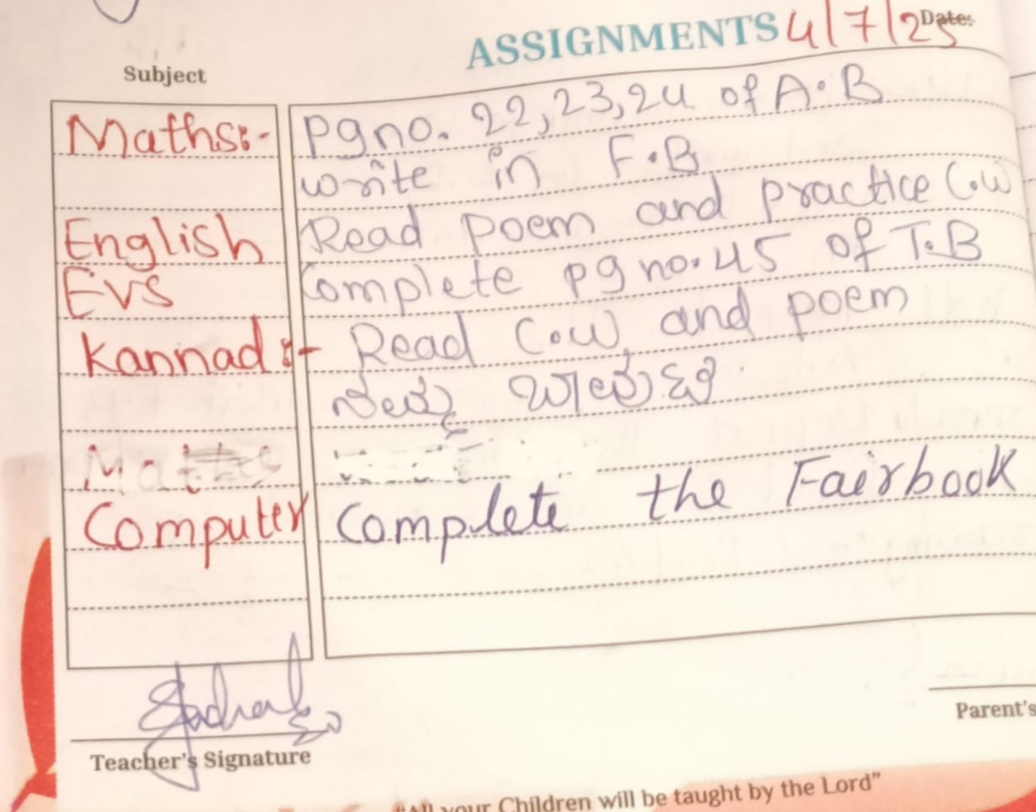 ASSIGNMENTS 4/7/25 Date:
Subject
Maths:- Pg no. 22,23,24 of A.B
write in F.B
English Read Poem and practice C.W
EVS Complete pg no. 45 of T.B
Kannad :- Read C.W, and poem
Computer Complete the Fairbook
Teacher's Signature
Parent's
your Children will be taught by the Lord"